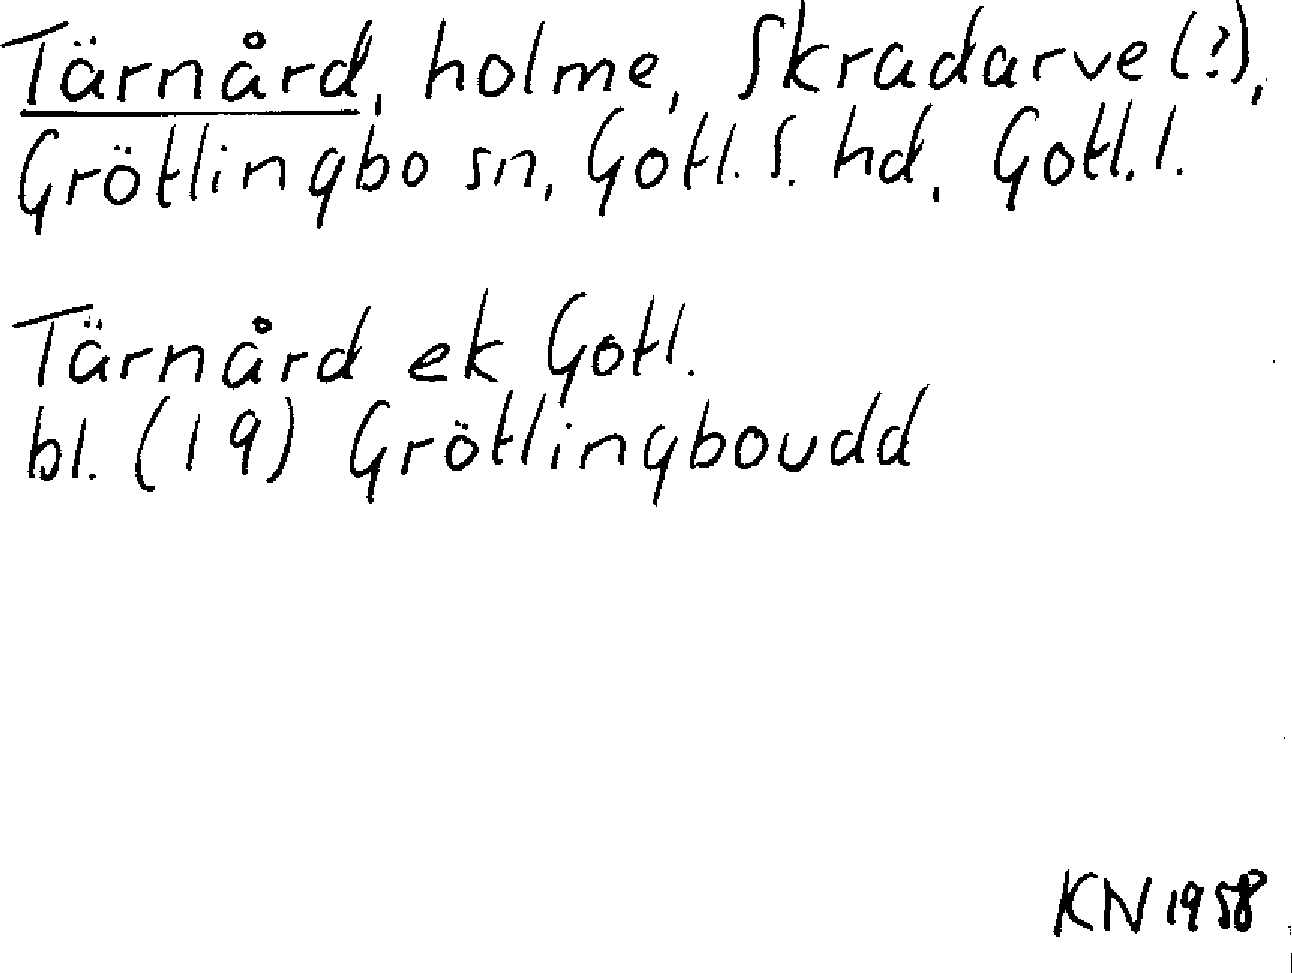 Tärnård, holme, Skradarve(?),
Grötlingbo sn, Gotl. S. hd, Gotl. l.
Tärnård ek Gotl.
bl. (19) Grötlingboudd
KN 1958